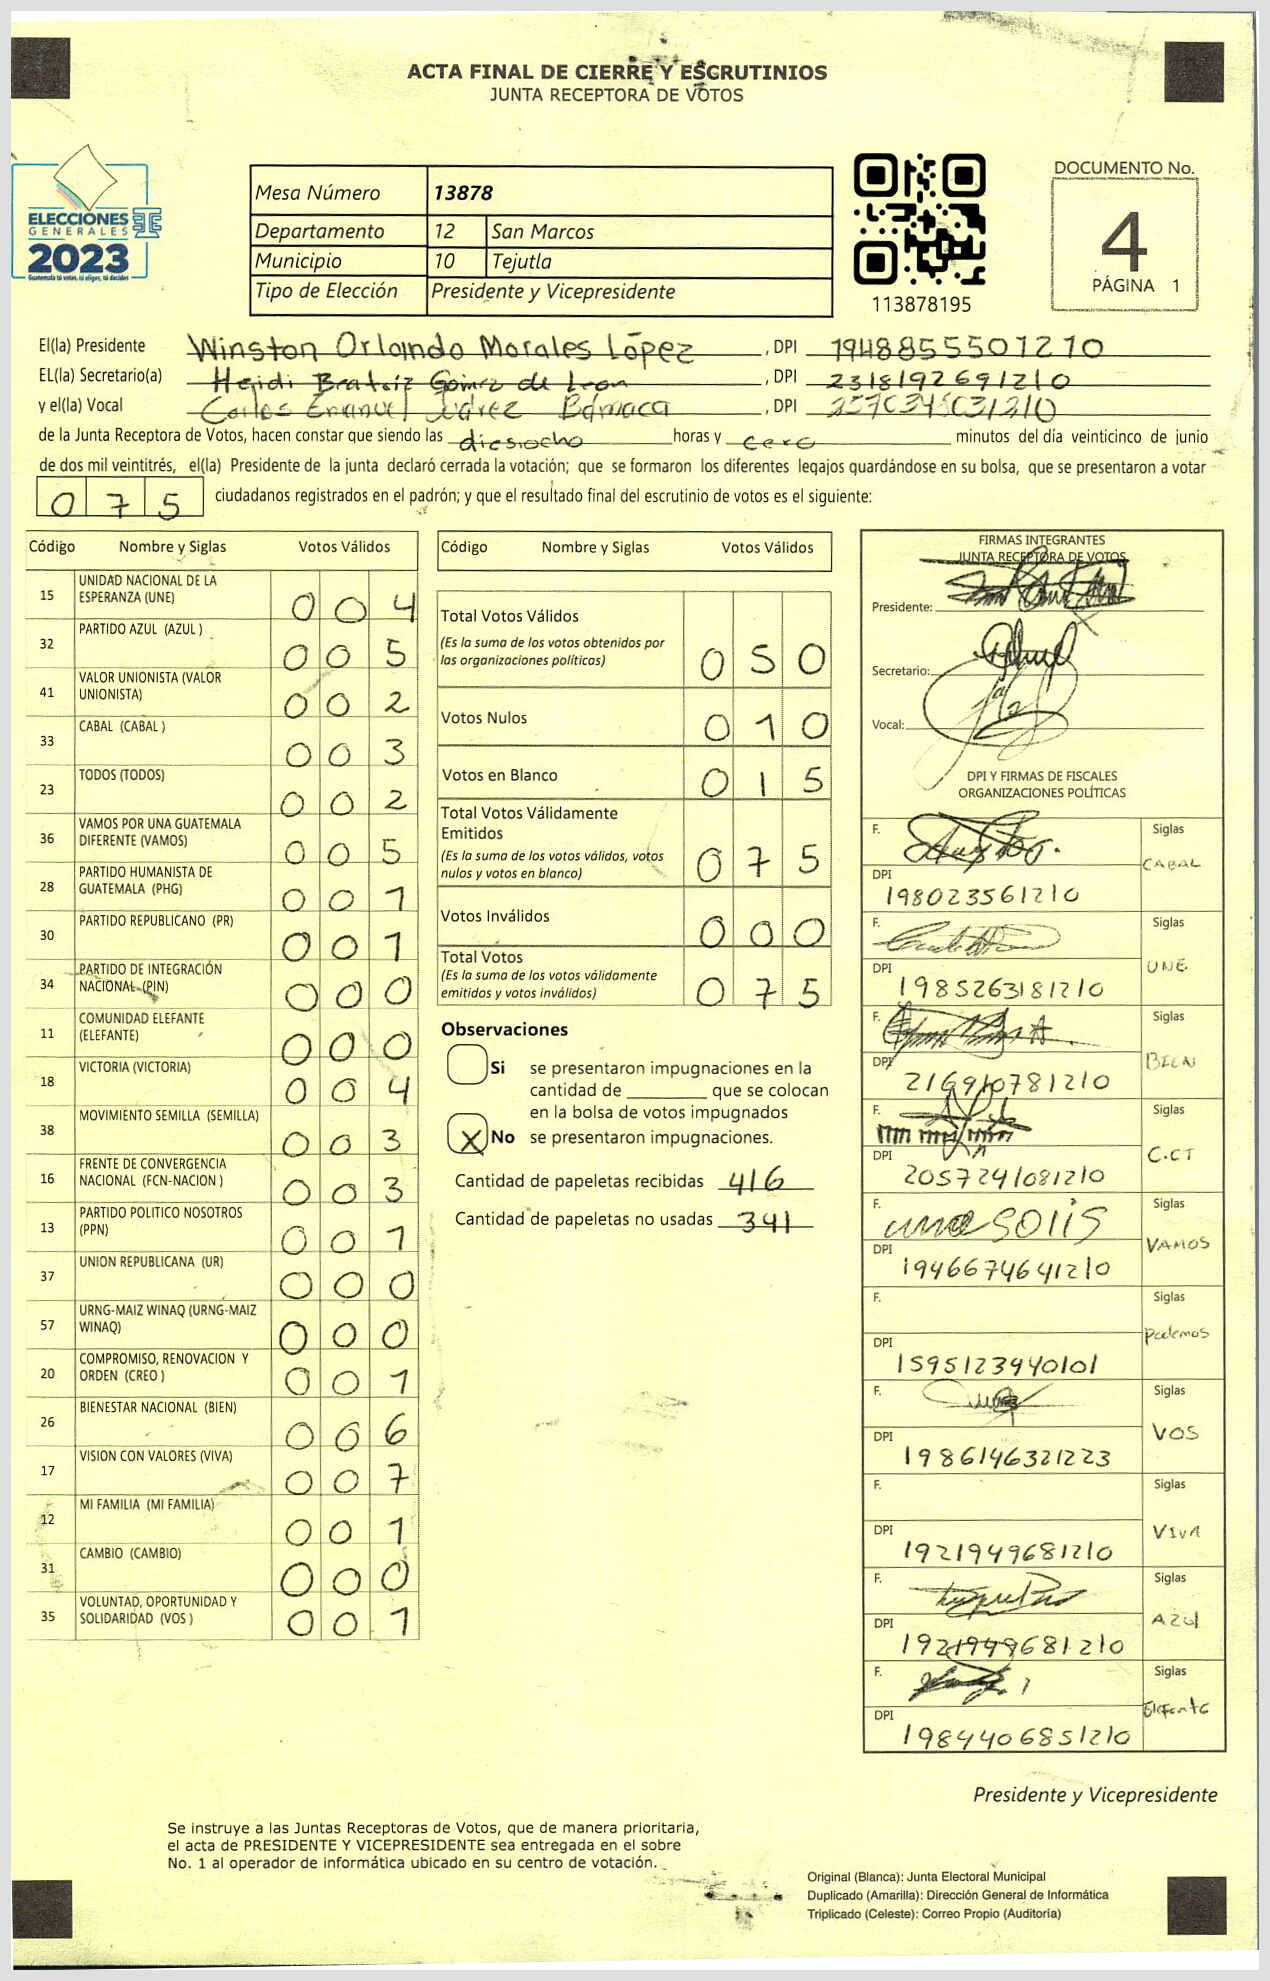 ACTA FINAL DE CIERRE Y ESCRUTINIOS
JUNTA RECEPTORA DE VOTOS
ELECCIONES
GENERALES
2023
Guatemala tú votas, tú eliges, tú decides
Mesa Número 13878
Departamento 12 San Marcos
Municipio 10 Tejutla
Tipo de Elección Presidente y Vicepresidente
113878195
DOCUMENTO No.
4
PÁGINA 1
El(la) Presidente Winston Orlando Morales López, DPI 1948855501210
EL(la) Secretario(a) Heidi Beatriz Gómez de Leon, DPI 2318192691210
y el(la) Vocal Carlos Emanuel Juárez Bámaca, DPI
de la Junta Receptora de Votos, hacen constar que siendo las diesiocho horas y cero minutos del día veinticinco de junio
de dos mil veintitrés, el(la) Presidente de la junta declaró cerrada la votación; que se formaron los diferentes legajos guardándose en su bolsa, que se presentaron a votar
075 ciudadanos registrados en el padrón; y que el resultado final del escrutinio de votos es el siguiente:
Código Nombre y Siglas Votos Válidos
15 UNIDAD NACIONAL DE LA ESPERANZA (UNE) 004
32 PARTIDO AZUL (AZUL ) 005
41 VALOR UNIONISTA (VALOR UNIONISTA) 002
33 CABAL (CABAL ) 003
23 TODOS (TODOS) 002
36 VAMOS POR UNA GUATEMALA DIFERENTE (VAMOS) 005
28 PARTIDO HUMANISTA DE GUATEMALA (PHG) 001
30 PARTIDO REPUBLICANO (PR) 001
34 PARTIDO DE INTEGRACIÓN NACIONAL (PIN) 000
11 COMUNIDAD ELEFANTE (ELEFANTE) 000
18 VICTORIA (VICTORIA) 004
38 MOVIMIENTO SEMILLA (SEMILLA) 003
16 FRENTE DE CONVERGENCIA NACIONAL (FCN-NACION ) 003
13 PARTIDO POLITICO NOSOTROS (PPN) 001
37 UNION REPUBLICANA (UR) 000
57 URNG-MAIZ WINAQ (URNG-MAIZ WINAQ) 000
20 COMPROMISO, RENOVACION Y ORDEN (CREO ) 001
26 BIENESTAR NACIONAL (BIEN) 006
17 VISION CON VALORES (VIVA) 007
12 MI FAMILIA (MI FAMILIA) 001
31 CAMBIO (CAMBIO) 000
35 VOLUNTAD, OPORTUNIDAD Y SOLIDARIDAD (VOS ) 001
Código Nombre y Siglas Votos Válidos
Total Votos Válidos
(Es la suma de los votos obtenidos por
las organizaciones políticas) 050
Votos Nulos 010
Votos en Blanco 015
Total Votos Válidamente
Emitidos
(Es la suma de los votos válidos, votos
nulos y votos en blanco) 075
Votos Inválidos 000
Total Votos
(Es la suma de los votos válidamente
emitidos y votos inválidos) 075
Observaciones
Si se presentaron impugnaciones en la
cantidad de ________ que se colocan
en la bolsa de votos impugnados
X No se presentaron impugnaciones.
Cantidad de papeletas recibidas 416
Cantidad de papeletas no usadas 341
FIRMAS INTEGRANTES
JUNTA RECEPTORA DE VOTOS
Presidente:
Secretario:
Vocal:
DPI Y FIRMAS DE FISCALES
ORGANIZACIONES POLÍTICAS
F. Siglas CABAL
DPI 198023561210
F. Siglas UNE
DPI 1985263181210
F. Siglas BIEN
DPI 216910781210
F. Siglas C.CT
DPI 2057241081210
F. Siglas VAMOS
DPI 1946674641210
F. Siglas Podemos
DPI 1595123940101
F. Siglas VOS
DPI 1986146321223
F. Siglas VIVA
DPI 1921949681210
F. Siglas AZUL
DPI 1921949681210
F. Siglas Elefante
DPI 1984406851210
Presidente y Vicepresidente
Se instruye a las Juntas Receptoras de Votos, que de manera prioritaria,
el acta de PRESIDENTE Y VICEPRESIDENTE sea entregada en el sobre
No. 1 al operador de informática ubicado en su centro de votación.
Original (Blanca): Junta Electoral Municipal
Duplicado (Amarilla): Dirección General de Informática
Triplicado (Celeste): Correo Propio (Auditoría)